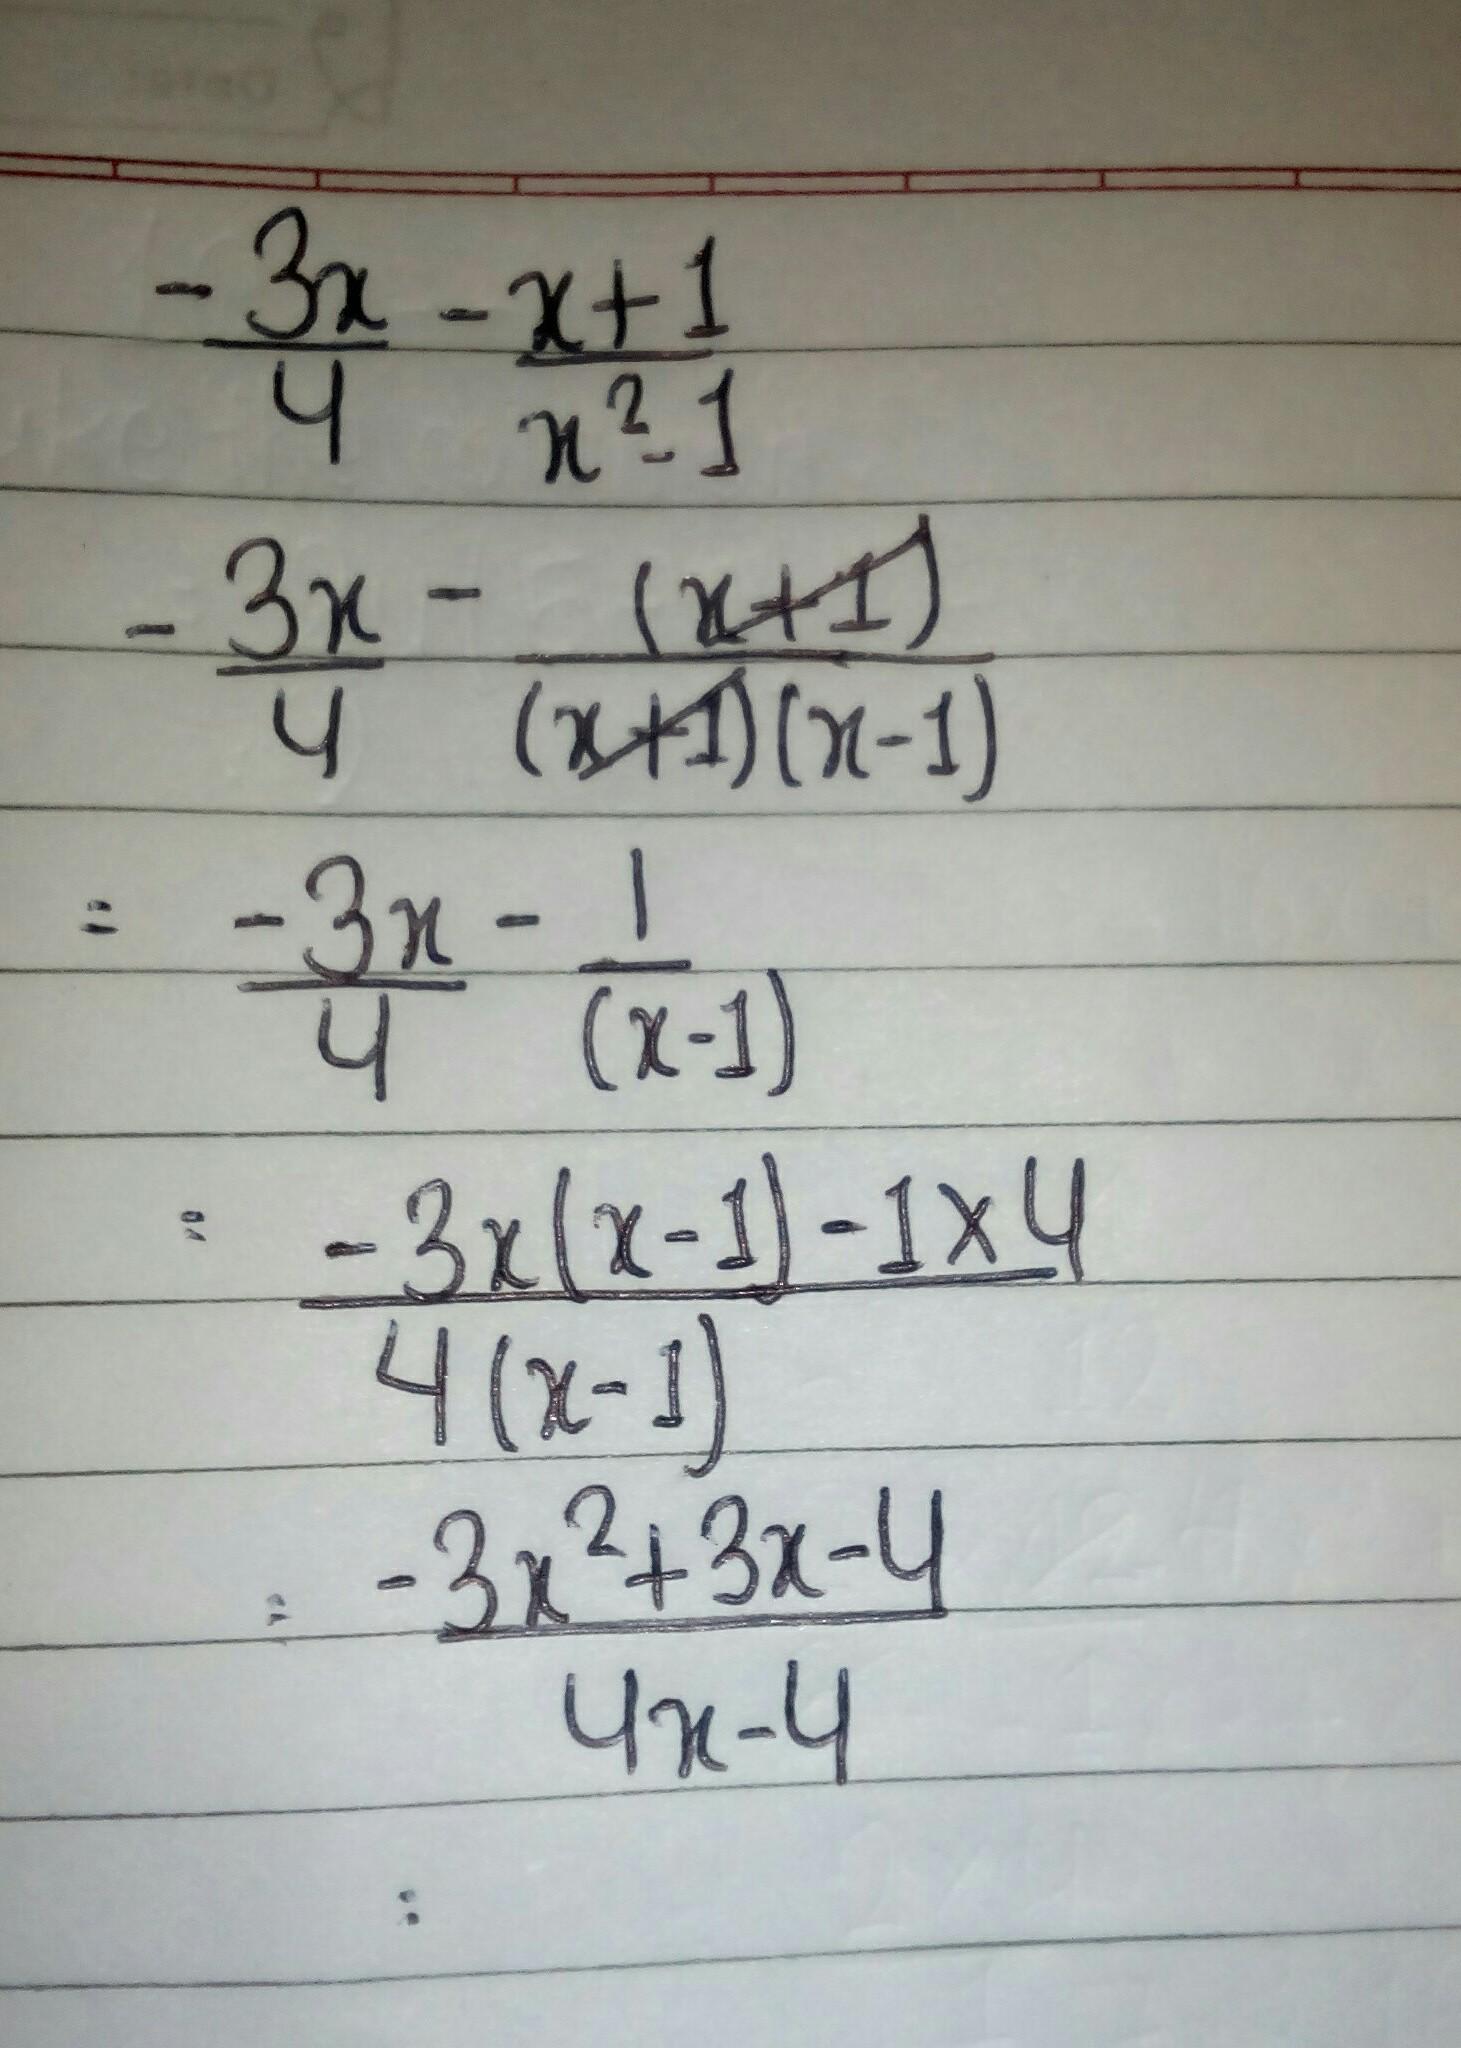 -3x/4 - x+1/x²-1
-3x/4 - (x+1)/(x+1)(x-1)
= -3x/4 - 1/(x-1)
= -3x(x-1)-1×4/4(x-1)
= -3x²+3x-4/4x-4
=